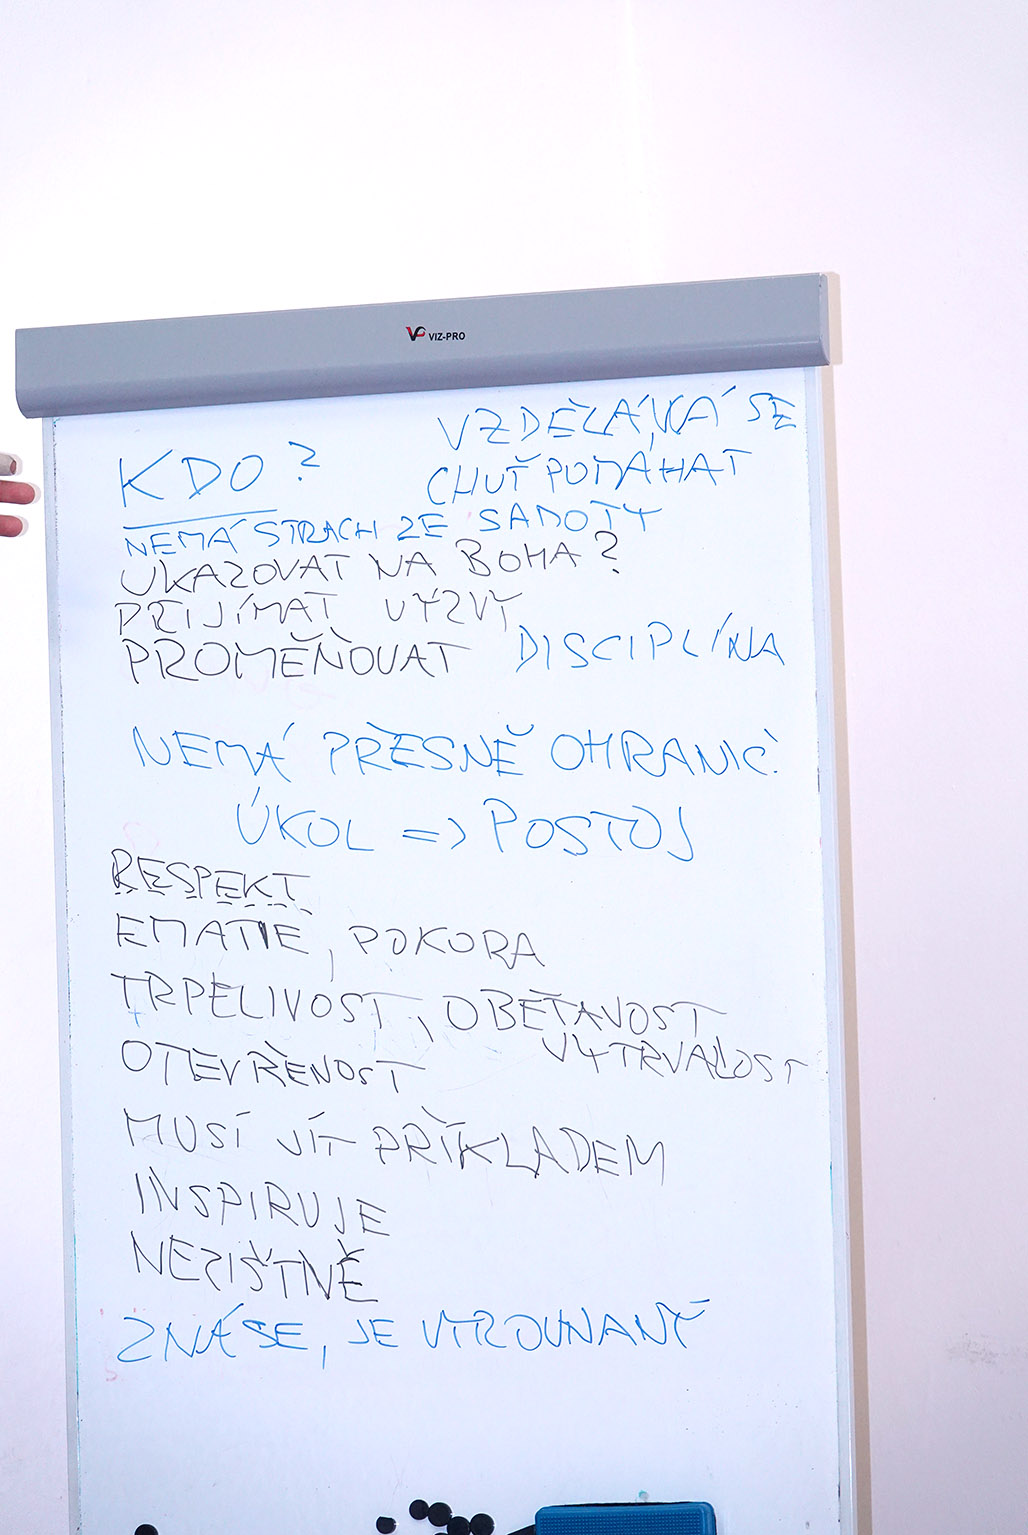 VIZ-PRO
VZDĚLÁVÁ SE
KDO?
CHUŤ POMÁHAT
NEMÁ STRACH ZE SAMOTY
UKAZOVAT NA BOHA?
PŘIJÍMAT VÝZVY
PROMĚŇOVAT DISCIPLÍNA
NEMÁ PŘESNĚ OHRANIČ.
ÚKOL => POSTOJ
RESPEKT
EMATIE, POKORA
TRPĚLIVOST, OBĚTAVOST
VYTRVALOST
OTEVŘENOST
MUSÍ JÍT PŘÍKLADEM
INSPIRUJE
NEZIŠTNĚ
ZNÁ SE, JE VYROVNANÝ